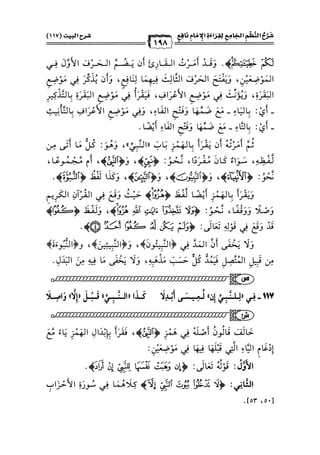 شرح البيت (١١٧)
١٩٨
شرح النظم الجامع لقراءة الإمام نافع
لَكُمْ خَطِيئَاتِكُمْ﴾. وَقَدْ أَمَرْتُ الْقَارِئَ أَن يَضُمَّ الْحَرْفَ الْأَوَّلَ فِي
الْمَوْضِعَيْنِ، وَيَفْتَحَ الْحَرْفَ الثَّالِثَ فِيهِمَا لِنَافِعٍ، وَأَن يُذَكِّرَ فِي مَوْضِعِ
الْبَقَرَةِ، وَيُؤَنِّثَ فِي مَوْضِعِ الْأَعْرَافِ، فَيَقْرَأَ فِي مَوْضِعِ الْبَقَرَةِ بِالتَّذْكِيرِ
- أَيْ: بِالْيَاءِ - مَعَ ضَمِّهَا وَفَتْحِ الْفَاءِ، وَفِي مَوْضِعِ الْأَعْرَافِ بِالتَّأْنِيثِ
- أَيْ: بِالتَّاءِ - مَعَ ضَمِّهَا وَفَتْحِ الْفَاءِ أَيْضًا.
ثُمَّ أَمَرْتُهُ أَن يَقْرَأَ بِالْهَمْزِ بَابَ «النَّبِيءِ»، وَهُوَ: كُلُّ مَا أَتَى مِن
لَفْظِهِ، سَوَاءٌ كَانَ مُفْرَدًا، نَحْوُ: و﴿النَّبِيءُ﴾، أَمْ مَجْمُوعًا،
نَحْوُ: ﴿الْأَنْبِئَاءَ﴾ و﴿النَّبِيئُونَ﴾ و﴿النَّبِيئِينَ﴾، وَكَذَا لَفْظُ ﴿النُّبُوءَةَ﴾.
وَيَقْرَأُ بِالْهَمْزِ أَيْضًا لَفْظَ ﴿هُزُؤًا﴾ حَيْثُ وَقَعَ فِي الْقُرْآنِ الْكَرِيمِ
وَصْلًا وَوَقْفًا، نَحْوُ: ﴿وَلَا تَتَّخِذُوا آيَاتِ اللَّهِ هُزُؤًا﴾، وَلَفْظَ ﴿كُفُؤًا﴾
وَقَدْ وَقَعَ فِي قَوْلِهِ تَعَالَى: ﴿وَلَمْ يَكُن لَّهُ كُفُؤًا أَحَدٌ﴾.
وَلَا يَخْفَى أَنَّ الْمَدَّ فِي ﴿النَّبِيئُونَ﴾ و﴿النَّبِيئِينَ﴾ و﴿النُّبُوءَةَ﴾
مِن قَبِيلِ الْمُتَّصِلِ فَيُمَدُّ كُلٌّ حَسَبَ مَذْهَبِهِ، وَلَا يَخْفَى مَا فِيهِ مِنَ الْبَدَلِ.
١١٧ - فِي «لِلنَّبِيِّ إِن» لِعِيسَى أَبْدِلَا كَذَا «النَّبِيِّ» قَبْلَ «إِلَّا» وَاصِلَا
خَالَفَ قَالُونُ أَصْلَهُ فِي هَمْزِ ﴿النَّبِيءِ﴾، فَقَرَأَ بِإِبْدَالِ الْهَمْزِ يَاءً مَعَ
إِدْغَامِ الْيَاءِ الَّتِي قَبْلَهَا فِيهَا فِي مَوْضِعَيْنِ:
الْأَوَّلُ: قَوْلُهُ تَعَالَى: ﴿إِن وَهَبَتْ نَفْسَهَا لِلنَّبِيِّ إِنْ أَرَادَ﴾.
الثَّانِي: ﴿لَا تَدْخُلُوا بُيُوتَ النَّبِيِّ إِلَّا﴾ كِلَاهُمَا فِي سُورَةِ الْأَحْزَابِ
[٥٠، ٥٣].